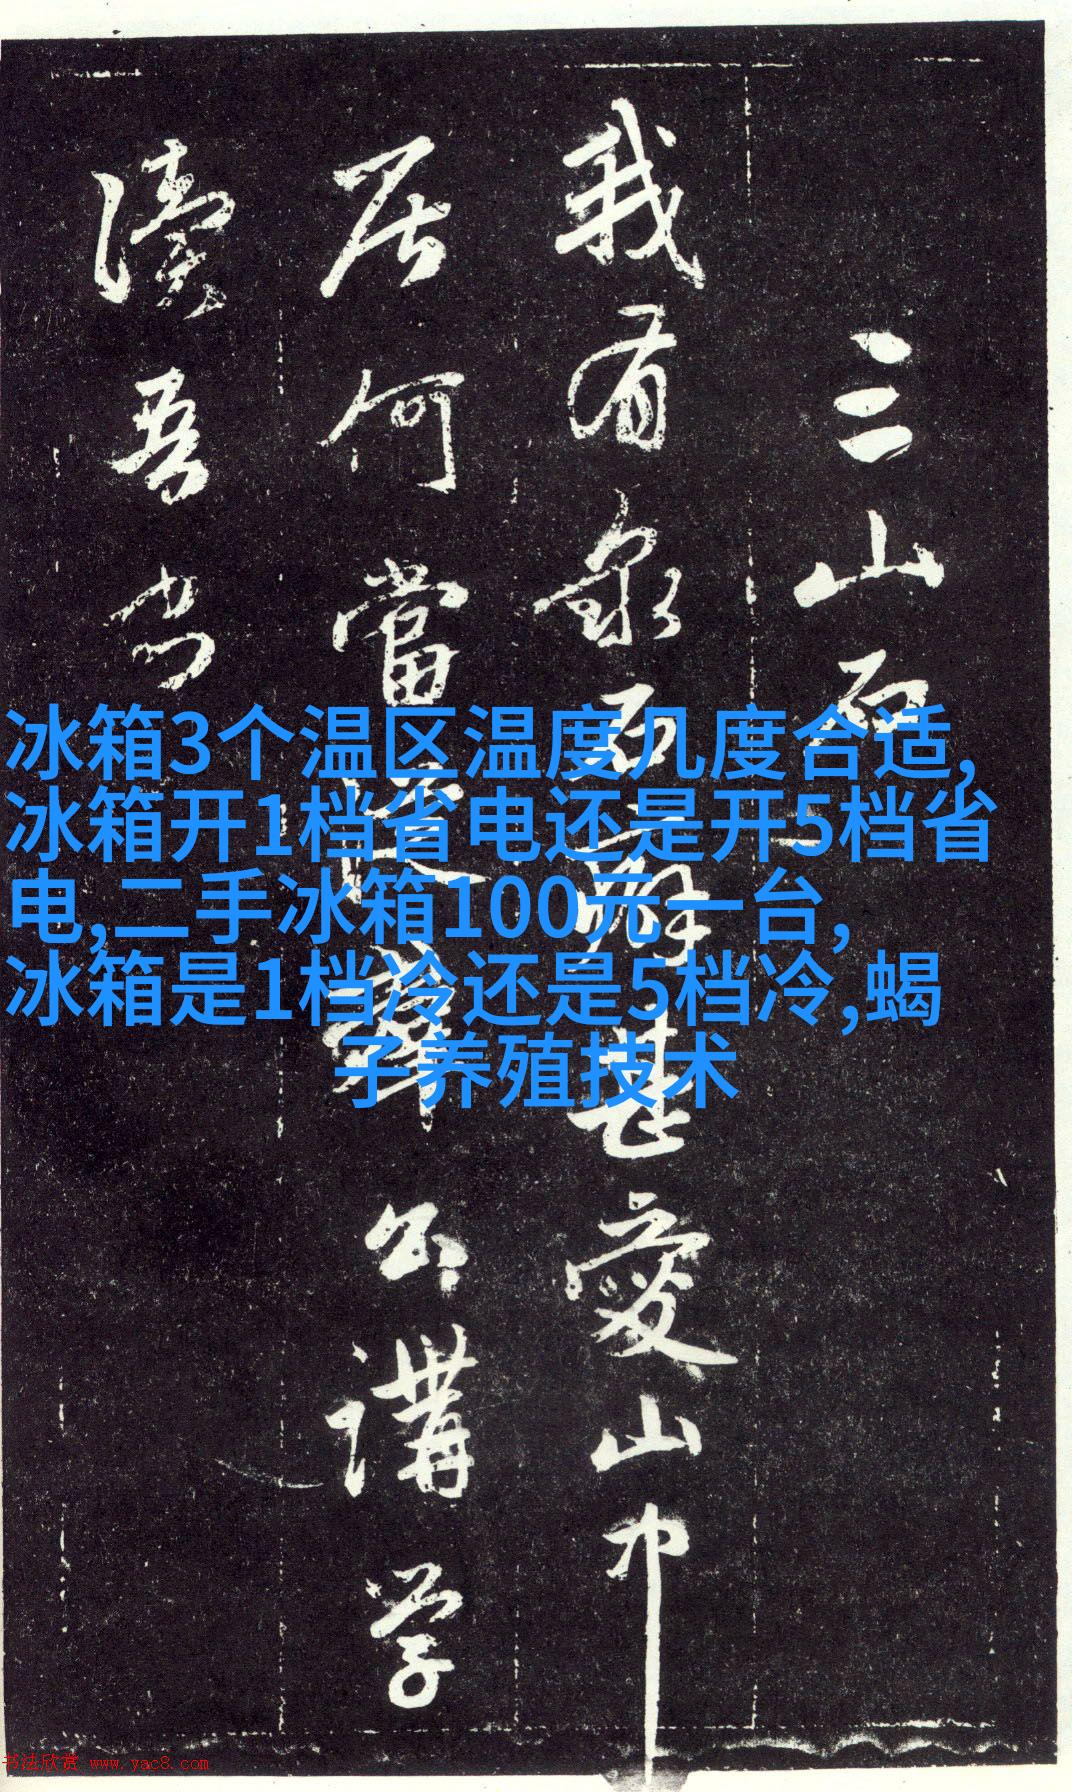 冰箱3个温区温度几度合适,
冰箱开1档省电还是开5档省
电,二手冰箱100元一台,
冰箱是1档冷还是5档冷,蝎
子养殖技术
三山石
我有泉石癖甚愛山中
居何當公講學
讀吾書
书法欣赏 www.yac8.com